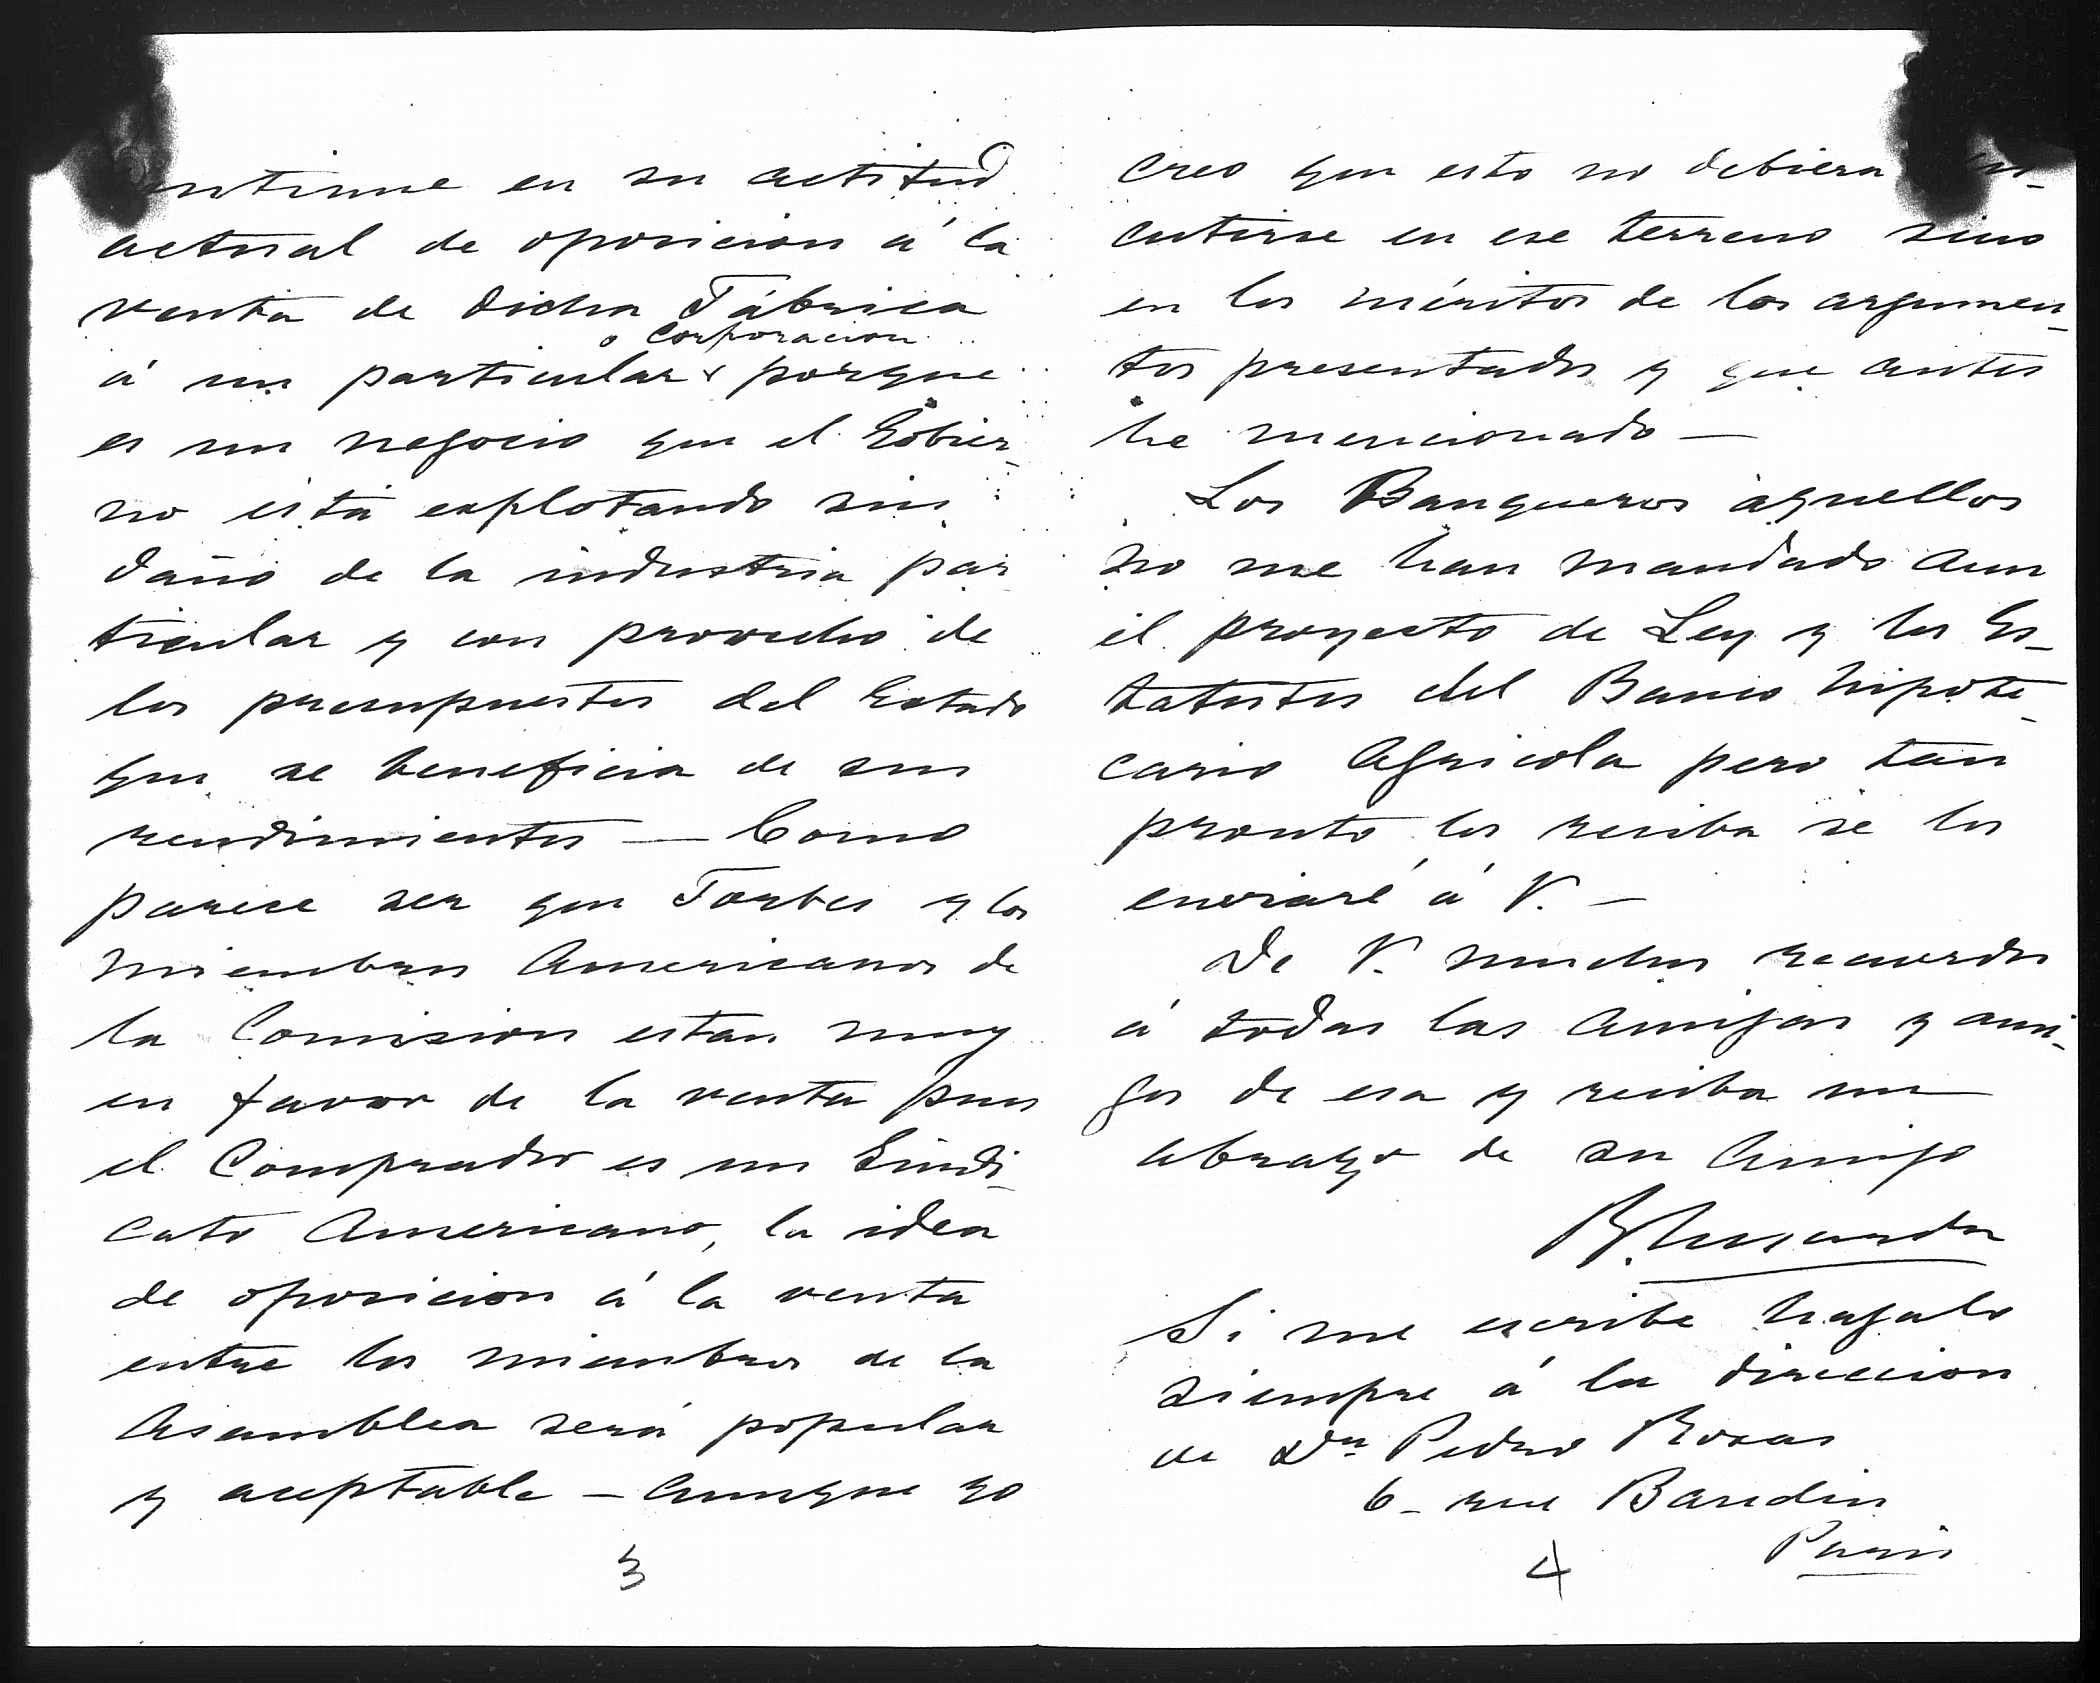 ntinue en su actitud
actual de oposicion á la
venta de dicha Fábrica
o corporacion
á un particular x porque
es un negocio que el Gobier-
no está explotando sin
daño de la industria par-
ticular y con provecho de
los presupuestos del Estado
que se beneficia de sus
rendimientos — Como
parece ser que Forbes y los
miembros Americanos de
la Comision estan muy
en favor de la venta pues
el Comprador es un Sindi-
cato Americano, la idea
de oposicion á la venta
entre los miembros de la
Asamblea será popular
y aceptable — Aunque yo
3
creo que esto no debiera
cutirse en ese terreno sino
en los méritos de los argumen-
tos presentados y que antes
he mencionado —
Los Banqueros aquellos
no me han mandado aun
el proyecto de Ley y los Es-
tatutos del Banco hipote-
cario Agricola pero tan
pronto los reciba se los
enviaré á V. —
De V. muchos recuerdos
á todas las Amigas y ami-
gos de esa y reciba un
abrazo de su Amigo
Si me escribe hagalo
siempre á la direccion
de Dn Pedro Roxas
6 - rue Baudin
Paris
4